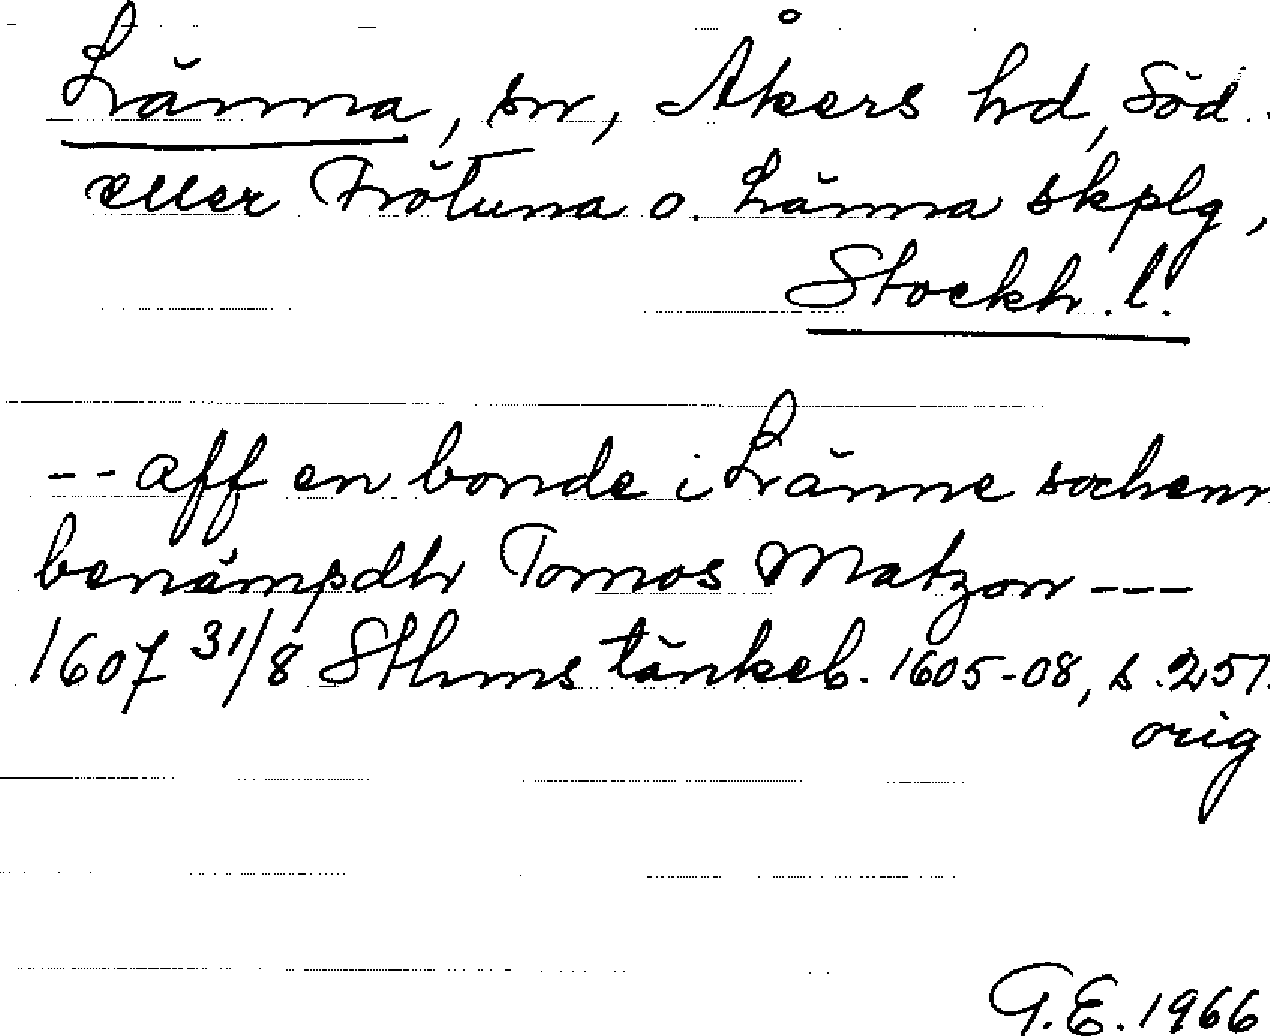 Länna, sn, Åkers hd, Söd.
eller Frötuna o. Länna skplg,
Stockh. l.
-- aff en bonde i Länne sochenn
benämpdh Tomos Matzon ---
1607 31/8 Sthms tänkeb. 1605-08, s. 257.
orig
G.E. 1966